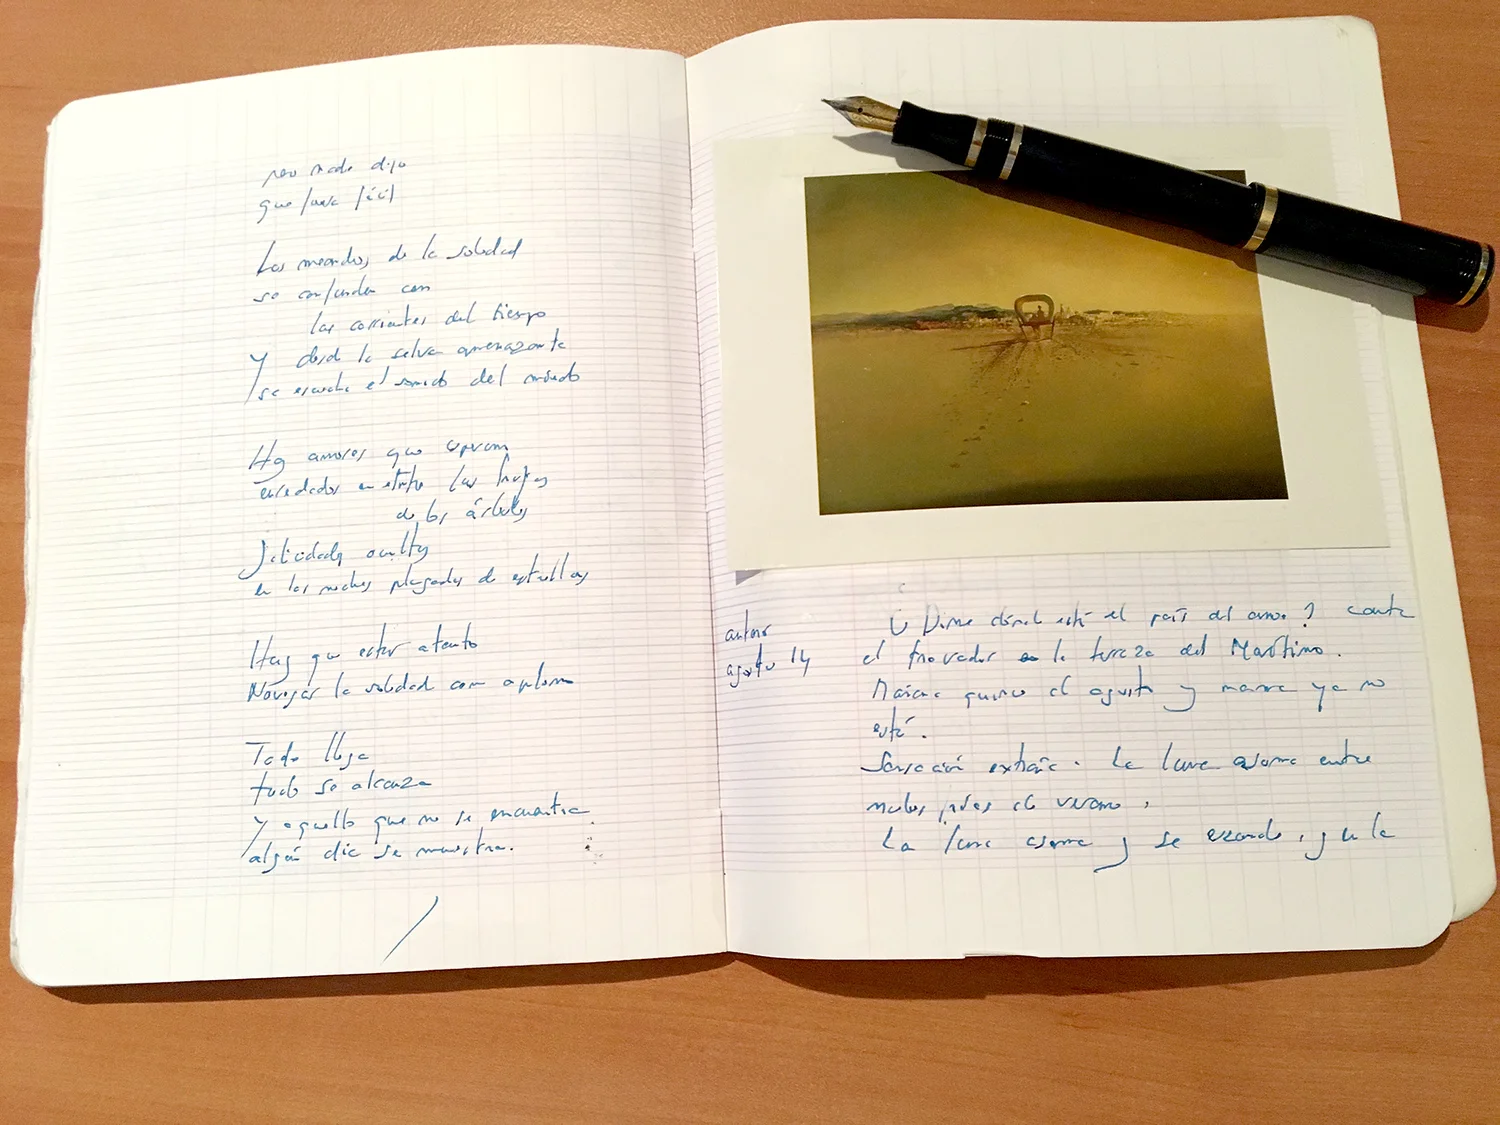 pero nadie dijo
que fuera fácil
Los meandros de la soledad
se confunden con
las corrientes del tiempo
y desde la selva amenazante
se escucha el sonido del mundo
Hay amores que esperan
enredados entre las hojas
de los árboles
felicidades ocultas
en las noches plagadas de estrellas
Hay que estar atento
Navegar la soledad con aplomo
Todo llega
todo se alcanza
y aquello que no se encuentra
algún día se muestra.
agosto 14
¿ Dime dónde está el país del amor ? canta
el trovador en la terraza del Marítimo.
agosto y ya no
está.
Sensación extraña. La luna asoma entre
nubes de verano.
La luna asoma y se esconde,